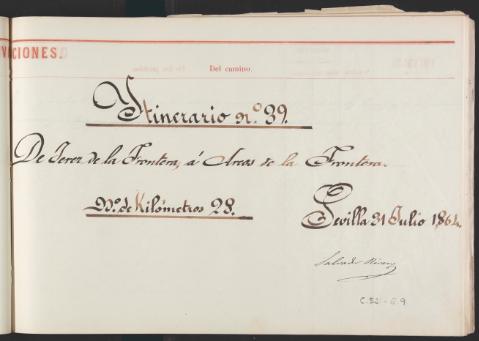 VACIONES.
Del camino.
Itinerario n.º 39.
De Jerez de la Frontera, á Arcos de la Frontera.
N.º de Kilómetros 28.
Sevilla 31 Julio 1864.
Salvador